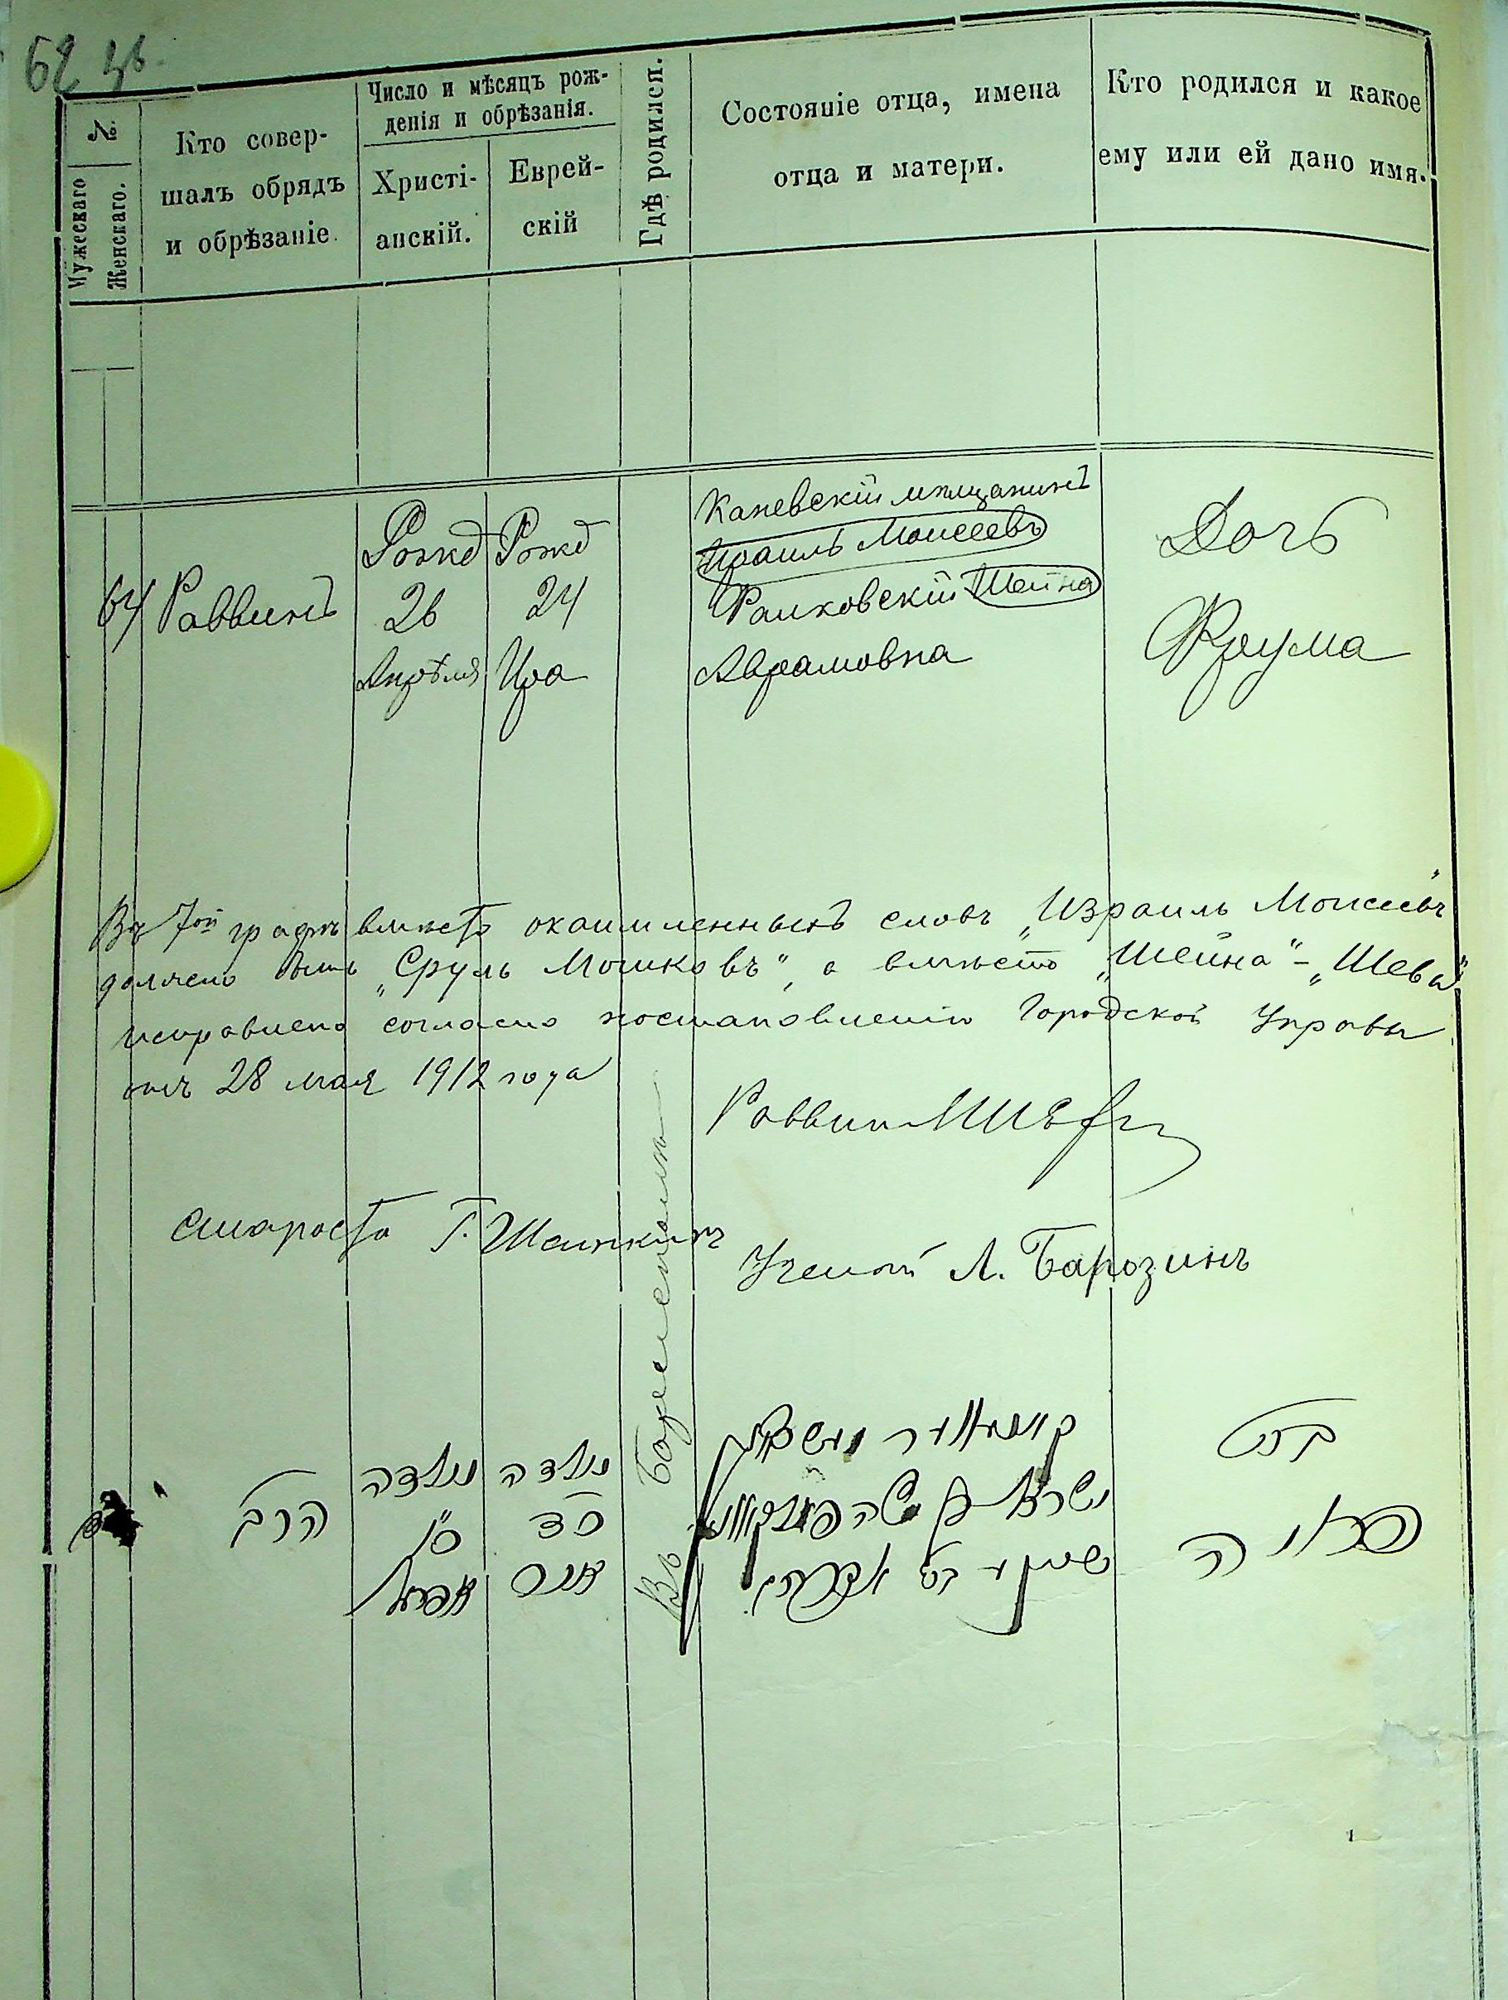 62 ив.
№
Мужескаго
Женскаго.
Кто совер-
шалъ обрядъ
и обрѣзаніе.
Число и мѣсяцъ рож-
денія и обрѣзанія.
Христі-
анскій.
Еврей-
скій
Гдѣ родился.
Состояніе отца, имена
отца и матери.
Кто родился и какое
ему или ей дано имя.
64
Раввинъ
Рожд
26
Апрѣля
Рожд
24
Ира
Каневскій мѣщанинъ
Израиль Моисеевъ
Шейна
Аврамовна
Дочь
Фрума
Въ 7ой графѣ вмѣсто окаймленныхъ словъ „Израиль Моисеевъ"
должно быть „Сруль Мошковъ", а вмѣсто „Шейна" – „Шева"
исправлено согласно постановленію Городской Управы
отъ 28 мая 1912 года
Раввинъ
Староста Г.
Ученый Л.
Въ Борисполѣ
הרב
נולדה
אפריל
נולדה
כד
אייר
בת
פרומה